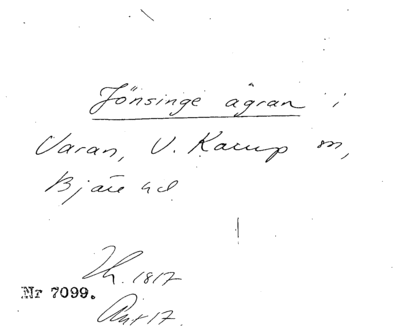 Jönsinge ågran i
Varan, V. Karup sn,
Bjäre hd
Th. 1817
Nr 7099.
17.